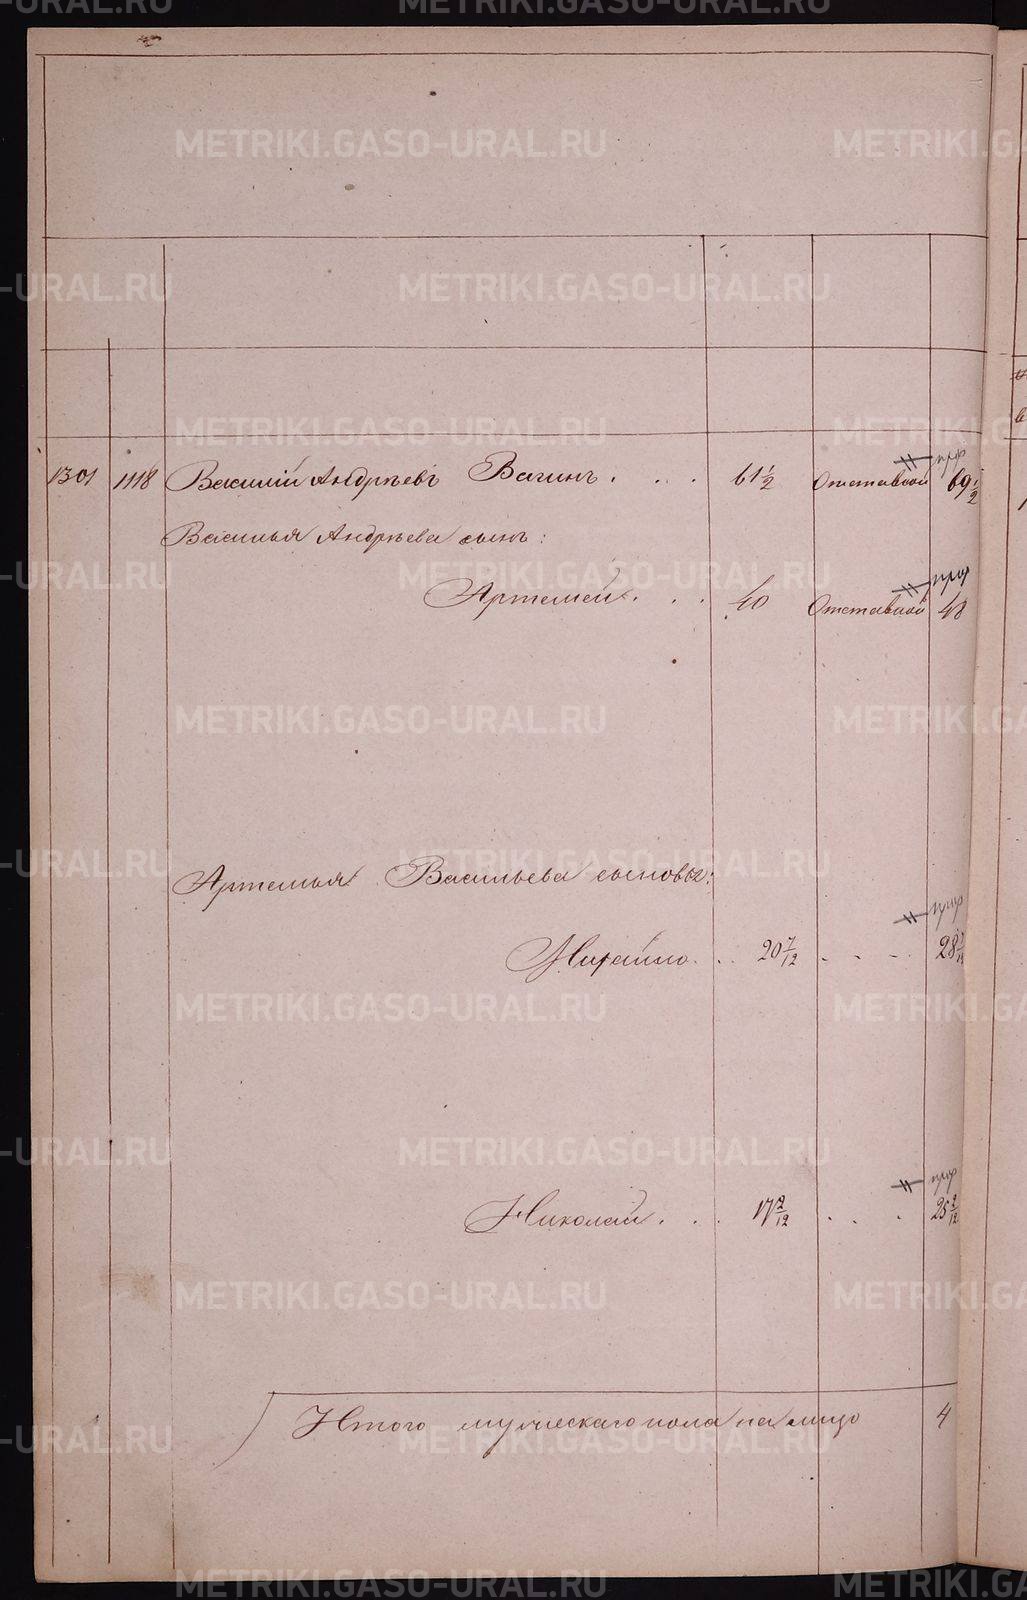 METRIKI.GASO-URAL.RU
1301 1118 Василій Андрѣевъ Вагинъ . . . 61 1/2 Отставной 69 1/2
Василья Андрѣева сынъ:
Артемей . . . 40 Отставной 48
Артемья Васильева сыновья:
Михайло . . . 20 7/12 . . . 28 7/12
Николай . . . 17 2/12 . . . 25 2/12
Итого мужескаго пола на лицо 4